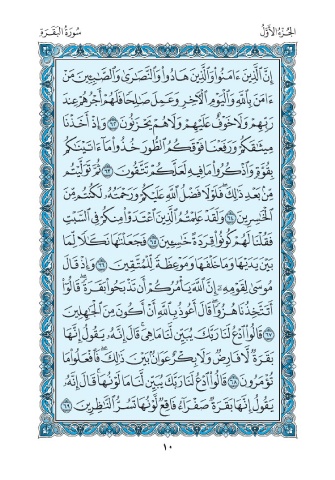 الجزء الأول
سورة البقرة
إِنَّ ٱلَّذِينَ ءَامَنُوا۟ وَٱلَّذِينَ هَادُوا۟ وَٱلنَّصَٰرَىٰ وَٱلصَّٰبِـِٔينَ مَنْ
ءَامَنَ بِٱللَّهِ وَٱلْيَوْمِ ٱلْـَٔاخِرِ وَعَمِلَ صَٰلِحًا فَلَهُمْ أَجْرُهُمْ عِندَ
رَبِّهِمْ وَلَا خَوْفٌ عَلَيْهِمْ وَلَا هُمْ يَحْزَنُونَ ٦٢ وَإِذْ أَخَذْنَا
مِيثَٰقَكُمْ وَرَفَعْنَا فَوْقَكُمُ ٱلطُّورَ خُذُوا۟ مَآ ءَاتَيْنَٰكُم
بِقُوَّةٍ وَٱذْكُرُوا۟ مَا فِيهِ لَعَلَّكُمْ تَتَّقُونَ ٦٣ ثُمَّ تَوَلَّيْتُم
مِّنۢ بَعْدِ ذَٰلِكَ فَلَوْلَا فَضْلُ ٱللَّهِ عَلَيْكُمْ وَرَحْمَتُهُۥ لَكُنتُم مِّنَ
ٱلْخَٰسِرِينَ ٦٤ وَلَقَدْ عَلِمْتُمُ ٱلَّذِينَ ٱعْتَدَوْا۟ مِنكُمْ فِى ٱلسَّبْتِ
فَقُلْنَا لَهُمْ كُونُوا۟ قِرَدَةً خَٰسِـِٔينَ ٦٥ فَجَعَلْنَٰهَا نَكَٰلًا لِّمَا
بَيْنَ يَدَيْهَا وَمَا خَلْفَهَا وَمَوْعِظَةً لِّلْمُتَّقِينَ ٦٦ وَإِذْ قَالَ
مُوسَىٰ لِقَوْمِهِۦٓ إِنَّ ٱللَّهَ يَأْمُرُكُمْ أَن تَذْبَحُوا۟ بَقَرَةً قَالُوٓا۟
أَتَتَّخِذُنَا هُزُوًا قَالَ أَعُوذُ بِٱللَّهِ أَنْ أَكُونَ مِنَ ٱلْجَٰهِلِينَ
٦٧ قَالُوا۟ ٱدْعُ لَنَا رَبَّكَ يُبَيِّن لَّنَا مَا هِىَ قَالَ إِنَّهُۥ يَقُولُ إِنَّهَا
بَقَرَةٌ لَّا فَارِضٌ وَلَا بِكْرٌ عَوَانٌۢ بَيْنَ ذَٰلِكَ فَٱفْعَلُوا۟ مَا
تُؤْمَرُونَ ٦٨ قَالُوا۟ ٱدْعُ لَنَا رَبَّكَ يُبَيِّن لَّنَا مَا لَوْنُهَا قَالَ إِنَّهُۥ
يَقُولُ إِنَّهَا بَقَرَةٌ صَفْرَآءُ فَاقِعٌ لَّوْنُهَا تَسُرُّ ٱلنَّٰظِرِينَ ٦٩
١٠